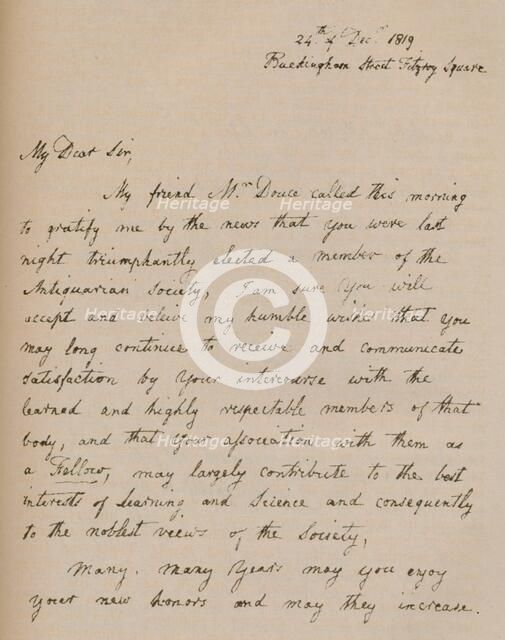 24th of Decr. 1819
Buckingham Street Fitzroy Square
My Dear Sir,
My friend Mr Douce called this morning
to gratify me by the news that you were last
night triumphantly elected a member of the
Antiquarian Society, I am sure you will
accept and believe my humble wishes that you
may long continue to receive and communicate
satisfaction by your intercourse with the
learned and highly respectable members of that
body, and that your association with them as
a Fellow, may largely contribute to the best
interests of learning and science and consequently
to the noblest views of the Society,
Many, many years may you enjoy
your new honors and may they increase.